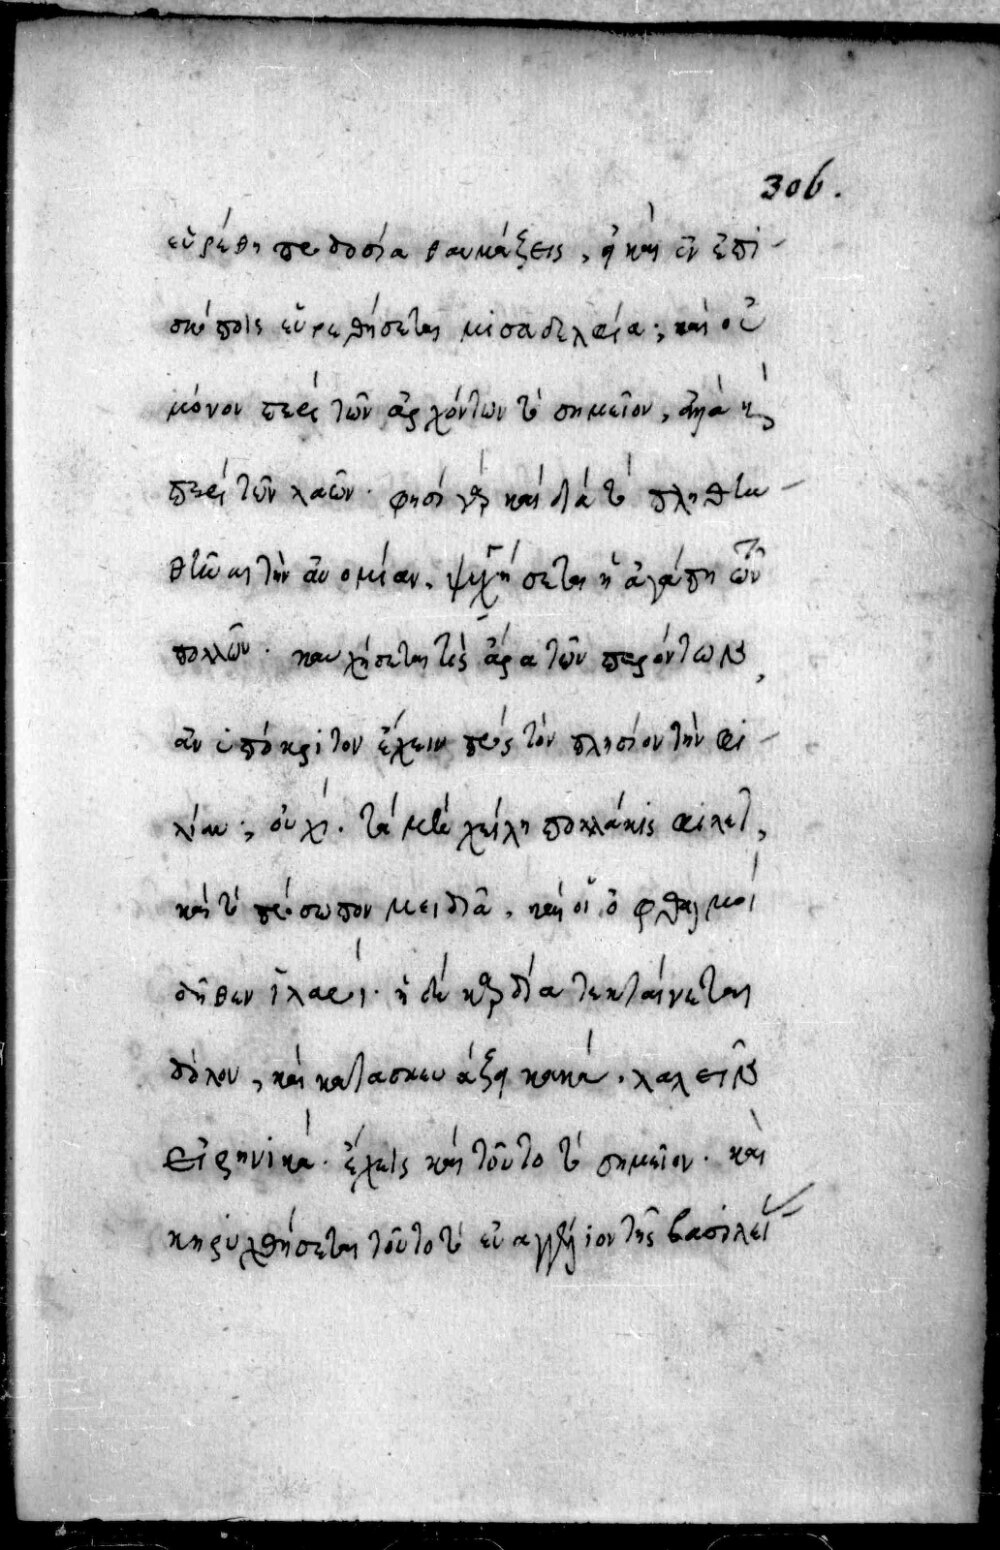 306.
εὑρέθη προδοσία θαυμάζεις, ἠ καὶ ἐν ἐπι-
σκόποις εὑρεθήσεται μισαδελφία; καὶ οὐ
μόνον περὶ τῶν ἀρχόντων τὸ σημεῖον, ἀλλὰ κὶ
περὶ τῶν λαῶν. φησὶ γὰρ καὶ διὰ τὸ πληθυν-
θῆναι τὴν ἀνομίαν, ψυχήσεται ἡ ἀγάπη τῶν
πολλῶν. καυχήσεται τὶς ἄρα τῶν παρόντων,
ἀνυπόκριτον ἔχειν πρὸς τὸν πλησίον τὴν φι-
λίαν; οὐχί. τὰ μὲν χείλη πολλάκις φιλεῖ,
καὶ τὸ πρόσωπον μειδιᾶ, καὶ οἱ ὀφθαλμοὶ
δῆθεν ἱλαροί. ἡ δὲ καρδία τεκταίνεται
δόλον, καὶ κατασκευάζει κακά, λαλεῖν
εἰρηνικά. ἔχεις καὶ τοῦτο τὸ σημεῖον. καὶ
κηρυχθήσεται τοῦτο τὸ εὐαγγέλιον τῆς βασιλεί-